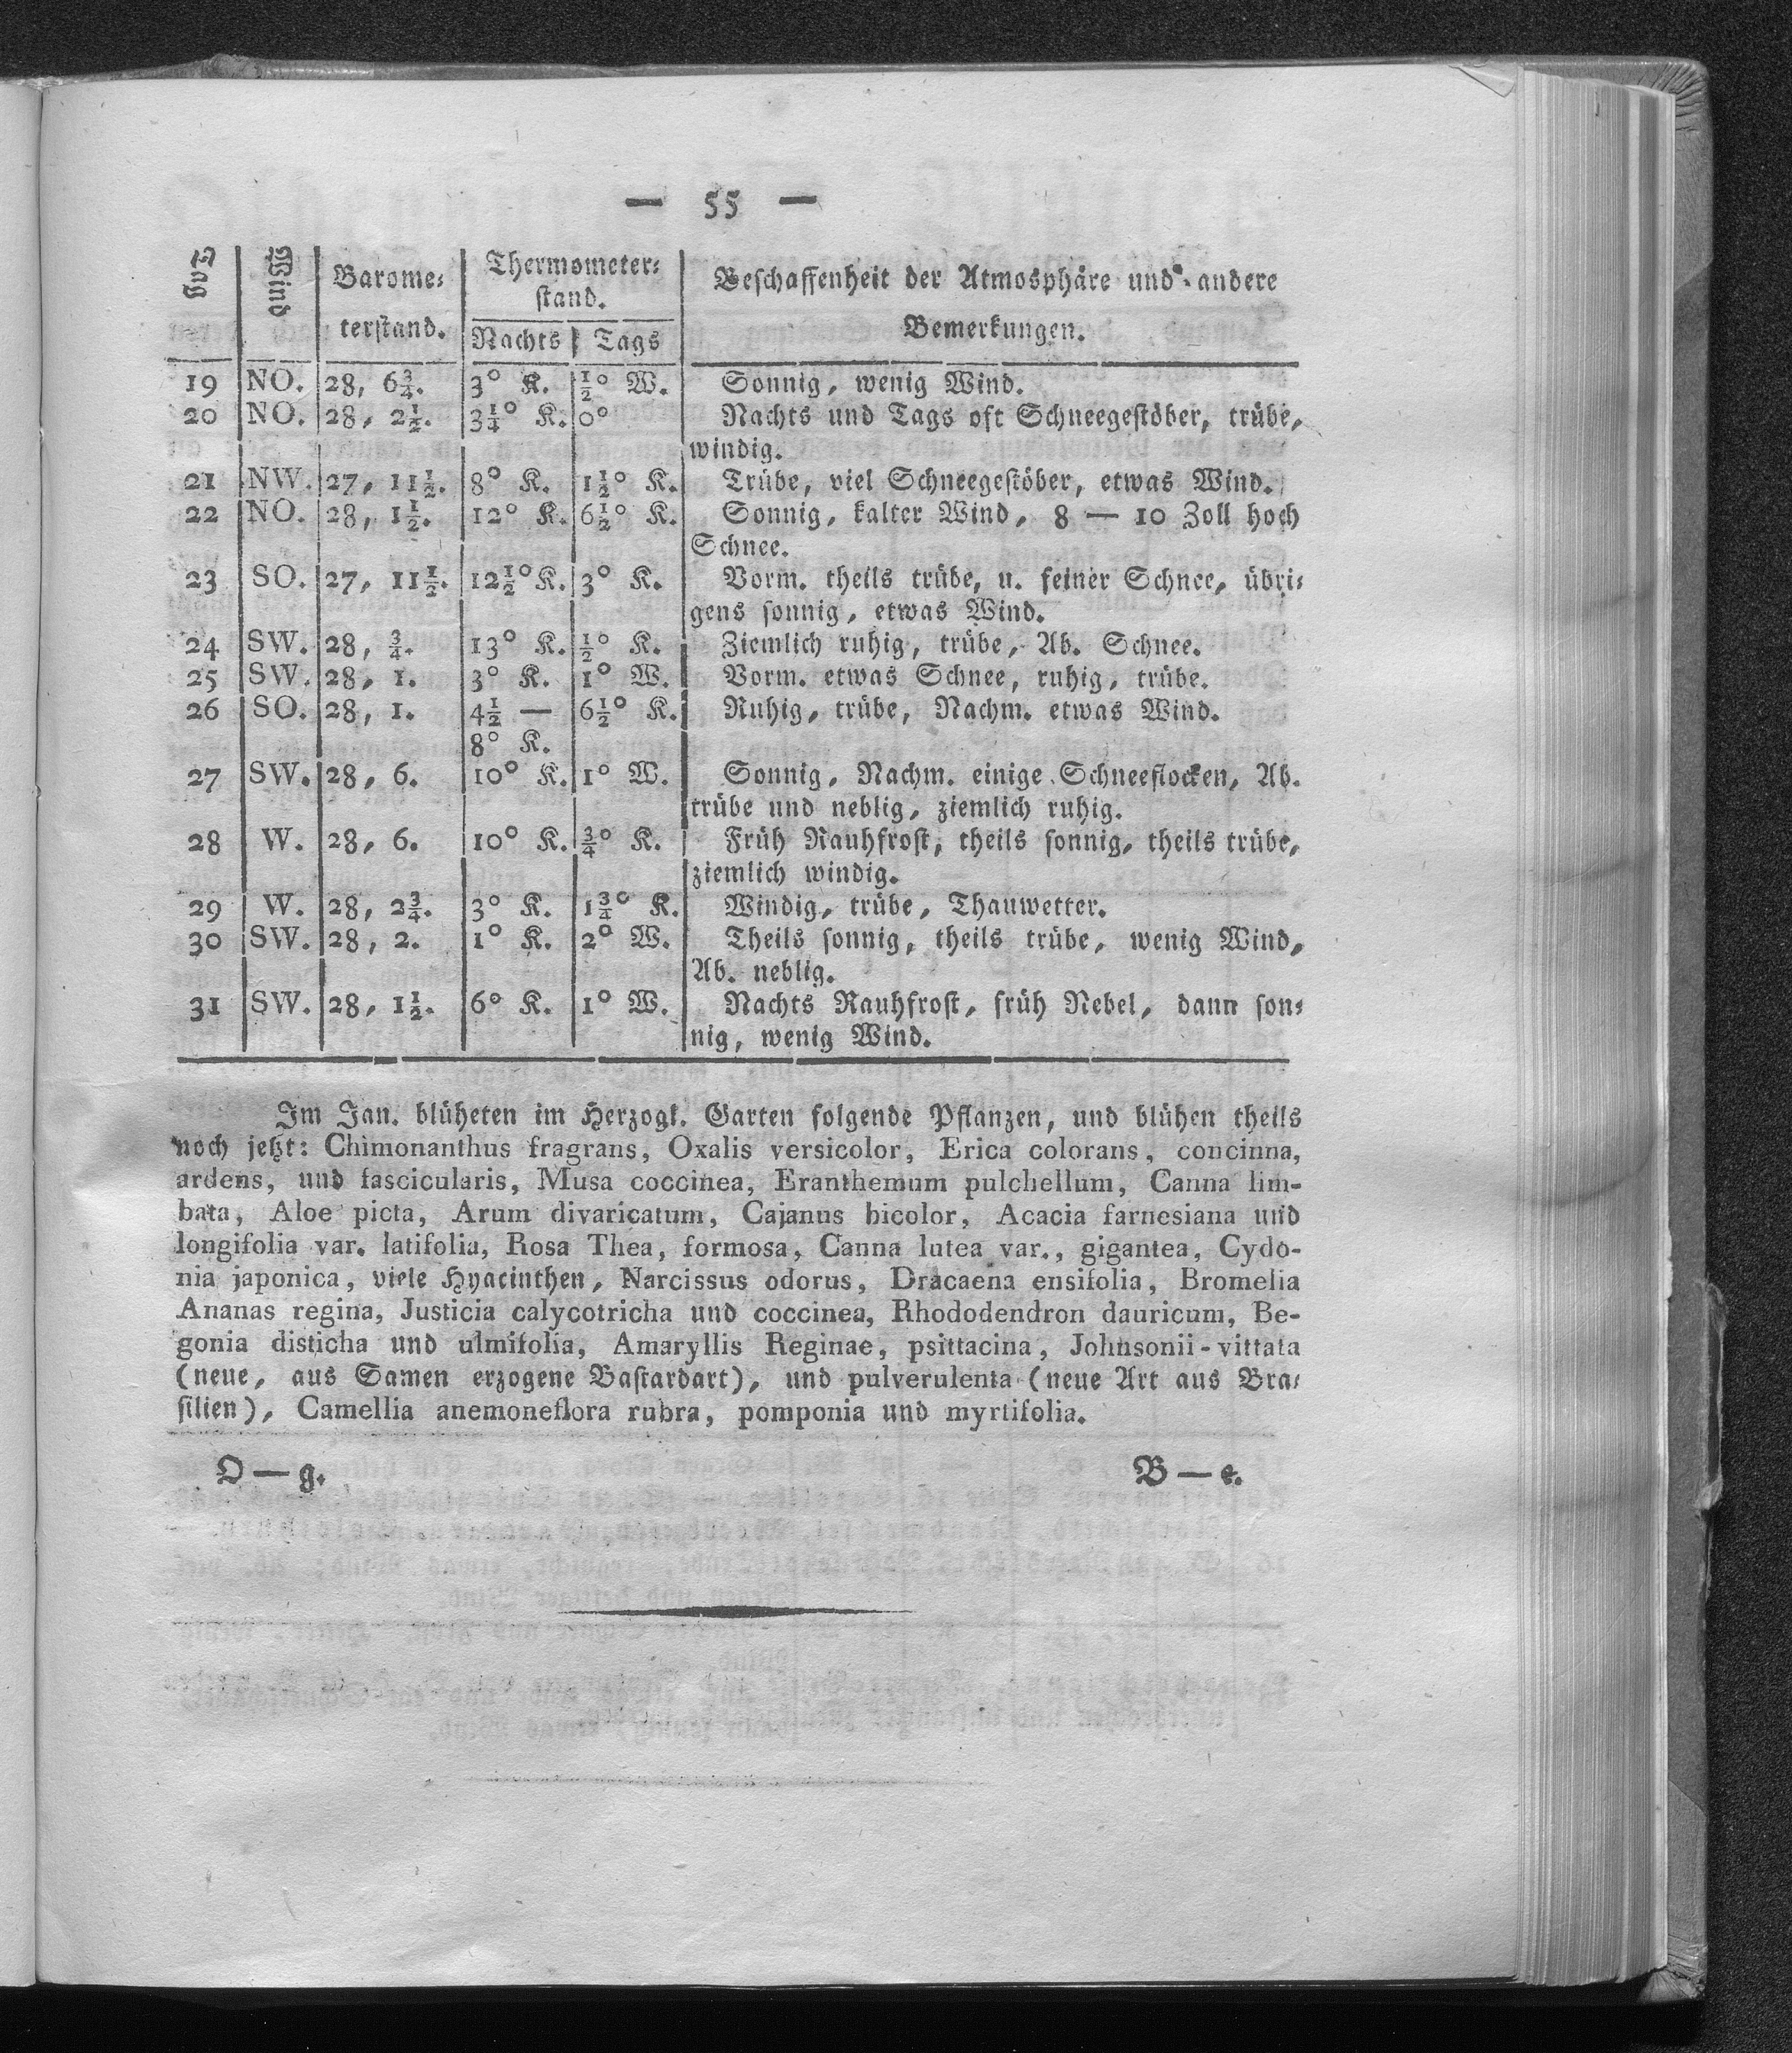 — 55 —
Tag | Wind | Barome- | Thermometer- | Beschaffenheit der Atmosphäre und andere
terstand. | stand. | Bemerkungen.
Nachts | Tags
19 | NO. | 28, 6¾. | 3° K. | ½° W. | Sonnig, wenig Wind.
20 | NO. | 28, 2½. | 3¼° K. | 0° | Nachts und Tags oft Schneegestöber, trübe,
windig.
21 | NW. | 27, 11½. | 8° K. | 1½° K. | Trübe, viel Schneegestöber, etwas Wind.
22 | NO. | 28, 1½. | 12° K. | 6½° K. | Sonnig, kalter Wind, 8 — 10 Zoll hoch
Schnee.
23 | SO. | 27, 11½. | 12½° K. | 3° K. | Vorm. theils trübe, u. feiner Schnee, übri-
gens sonnig, etwas Wind.
24 | SW. | 28, ¾. | 13° K. | ½° K. | Ziemlich ruhig, trübe, Ab. Schnee.
25 | SW. | 28, 1. | 3° K. | 1° W. | Vorm. etwas Schnee, ruhig, trübe.
26 | SO. | 28, 1. | 4½ — | 6½° K. | Ruhig, trübe, Nachm. etwas Wind.
8° K.
27 | SW. | 28, 6. | 10° K. | 1° W. | Sonnig, Nachm. einige Schneeflocken, Ab.
trübe und neblig, ziemlich ruhig.
28 | W. | 28, 6. | 10° K. | ¾° K. | Früh Rauhfrost, theils sonnig, theils trübe,
ziemlich windig.
29 | W. | 28, 2¾. | 3° K. | 1¾° K. | Windig, trübe, Thauwetter.
30 | SW. | 28, 2. | 1° K. | 2° W. | Theils sonnig, theils trübe, wenig Wind,
Ab. neblig.
31 | SW. | 28, 1½. | 6° K. | 1° W. | Nachts Rauhfrost, früh Nebel, dann son-
nig, wenig Wind.
Im Jan. blüheten im Herzogl. Garten folgende Pflanzen, und blühen theils
noch jetzt: Chimonanthus fragrans, Oxalis versicolor, Erica colorans, concinna,
ardens, und fascicularis, Musa coccinea, Eranthemum pulchellum, Canna lim-
bata, Aloe picta, Arum divaricatum, Cajanus bicolor, Acacia farnesiana und
longifolia var. latifolia, Rosa Thea, formosa, Canna lutea var., gigantea, Cydo-
nia japonica, viele Hyacinthen, Narcissus odorus, Dracaena ensifolia, Bromelia
Ananas regina, Justicia calycotricha und coccinea, Rhododendron dauricum, Be-
gonia disticha und ulmifolia, Amaryllis Reginae, psittacina, Johnsonii-vittata
(neue, aus Samen erzogene Bastardart), und pulverulenta (neue Art aus Bra-
silien), Camellia anemoneflora rubra, pomponia und myrtifolia.
O — g. B — e.